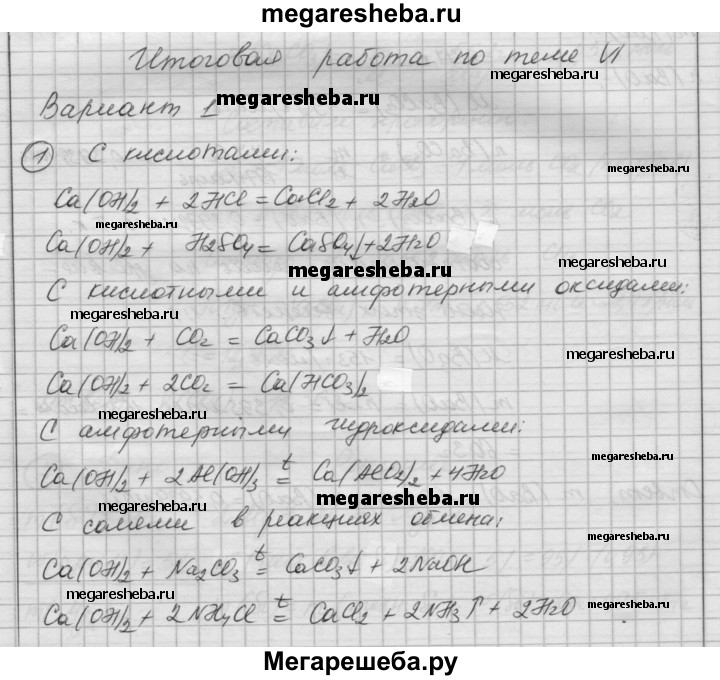 megaresheba.ru
Итоговая работа по теме VI
megaresheba.ru
Вариант 1 megaresheba.ru
1) С кислотами:
Ca(OH)2 + 2HCl = CaCl2 + 2H2O
megaresheba.ru
Ca(OH)2 + H2SO4 = CaSO4↓ + 2H2O
megaresheba.ru
megaresheba.ru
С кислотными и амфотерными оксидами:
megaresheba.ru
Ca(OH)2 + CO2 = CaCO3↓ + H2O
megaresheba.ru
Ca(OH)2 + 2CO2 = Ca(HCO3)2
megaresheba.ru
С амфотерными гидроксидами:
megaresheba.ru
Ca(OH)2 + 2Al(OH)3 =t Ca(AlO2)2 + 4H2O
megaresheba.ru megaresheba.ru
С солями в реакциях обмена:
megaresheba.ru
Ca(OH)2 + Na2CO3 =t CaCO3↓ + 2NaOH
megaresheba.ru megaresheba.ru
Ca(OH)2 + 2NH4Cl =t CaCl2 + 2NH3↑ + 2H2O
Мегарешеба.ру